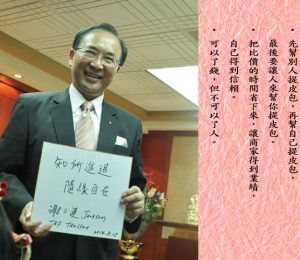 • 先幫別人提皮包，再幫自己提皮包，
最後要讓人來幫你提皮包。
• 把比價的時間省下來，讓商家得到業績，
自己得到信賴。
• 可以了錢，但不可以了人。
知所進退
隨緣自在
謝三連 Jackson
TRF Trustee